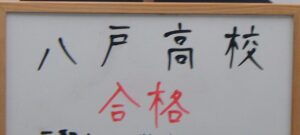 八戸高校
合格